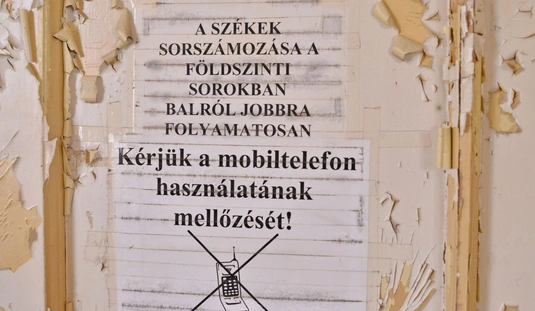 A SZÉKEK
SORSZÁMOZÁSA A
FÖLDSZINTI
SOROKBAN
BALRÓL JOBBRA
FOLYAMATOSAN
Kérjük a mobiltelefon
használatának
mellőzését!